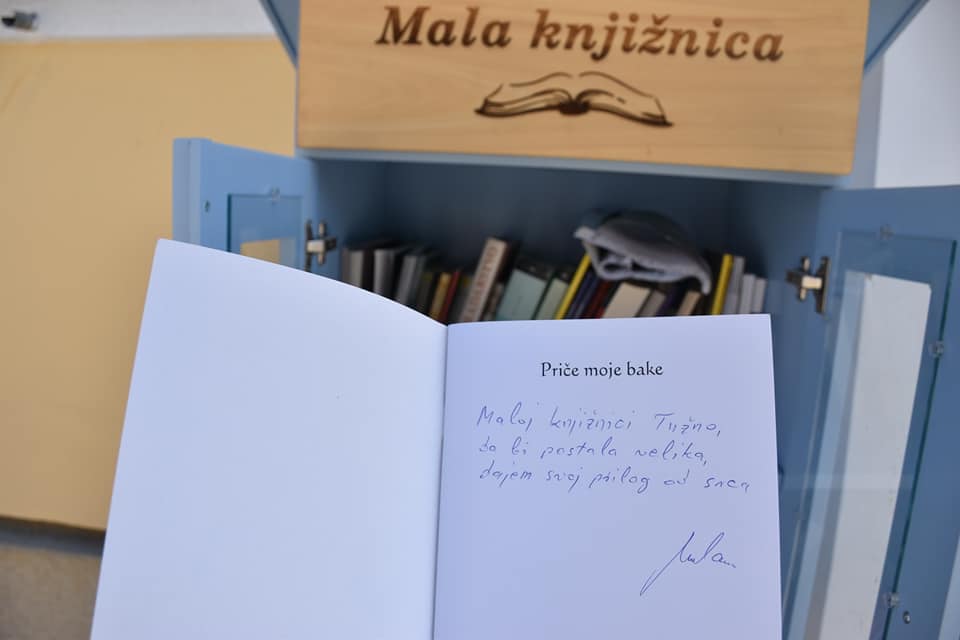 Mala knjižnica
Priče moje bake
Maloj knjižnici Tužno,
da bi postala velika,
dajem svoj prilog od srca